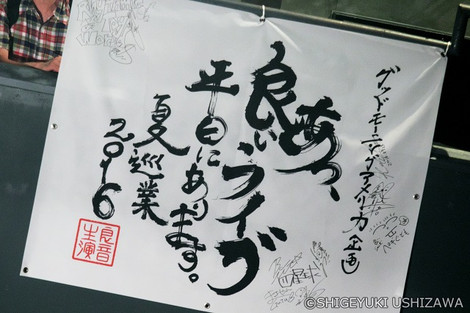 グッドモーニングアメリカ企画
あっ、
良いライブ
平日にあります。
夏巡業
2016
良音
生演
©SHIGEYUKI USHIZAWA